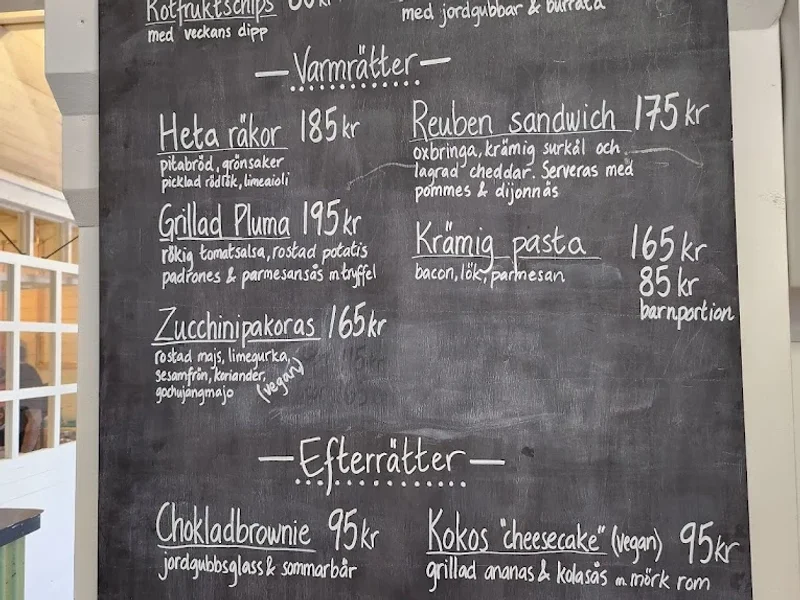 Rotfruktschips
med veckans dipp
med jordgubbar & burrata
Varmrätter
Heta räkor 185 kr
pitabröd, grönsaker
picklad rödlök, limeaioli
Grillad Pluma 195 kr
rökig tomatsalsa, rostad potatis
padrones & parmesansås m tryffel
Zucchinipakoras 165 kr
rostad majs, limegurka,
sesamfrön, koriander,
gochujangmajo (vegan)
Reuben sandwich 175 kr
oxbringa, krämig surkål och
lagrad cheddar. Serveras med
pommes & dijonnäs
Krämig pasta 165 kr
bacon, lök, parmesan 85 kr
barnportion
Efterrätter
Chokladbrownie 95 kr
jordgubbsglass & sommarbär
Kokos "cheesecake" (vegan) 95 kr
grillad ananas & kolasås m mörk rom